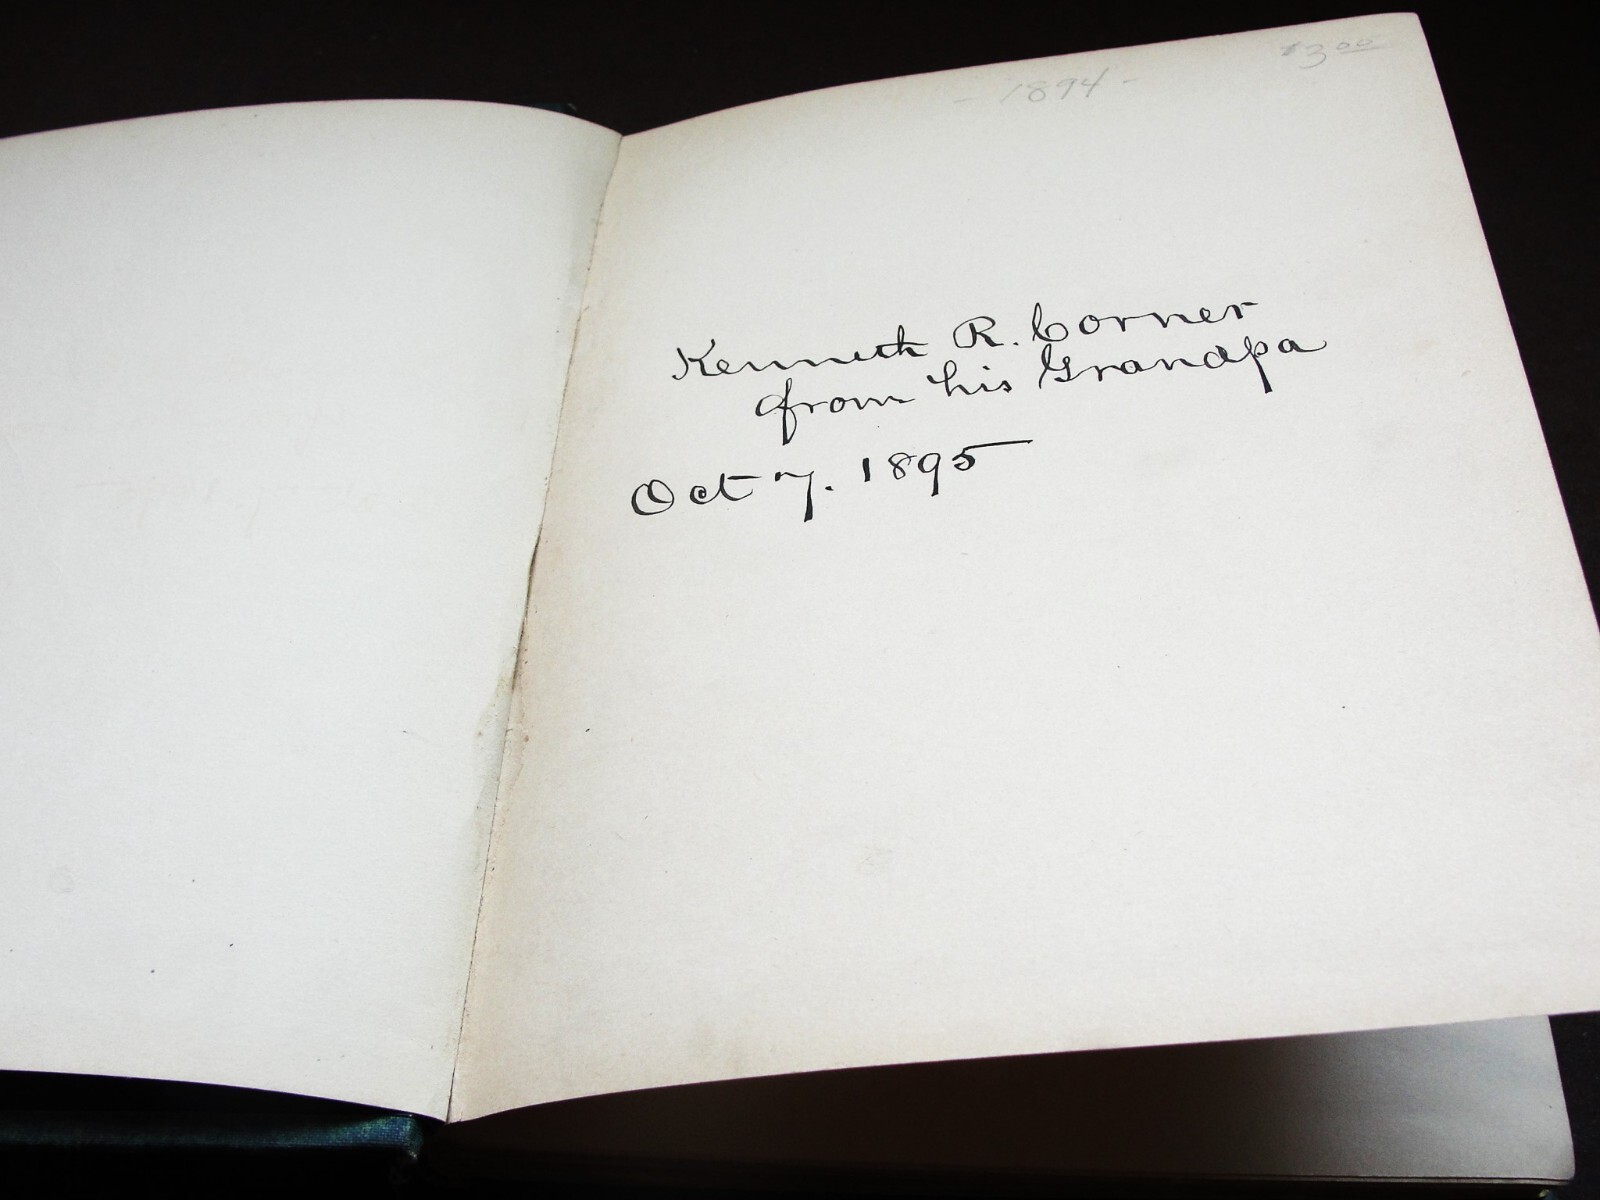 - 1894 -
$3.00
Kenneth R. Corner
from his Grandpa
Oct 7. 1895